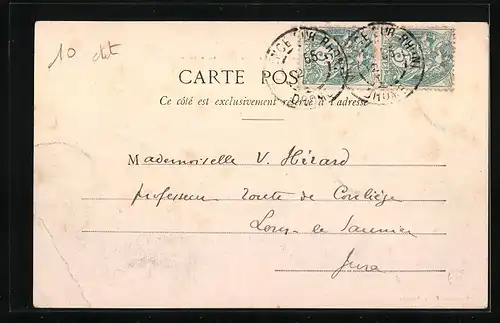 10 dt
CARTE POS
Ce côté est exclusivement réservé à l'adresse
Mademoiselle V. Hérard
professeur Route de Conliège
Lons-le Saunier
Jura